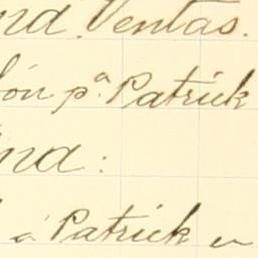 nd. Ventas.
ón pª Patrick
nd:
á Patrick en